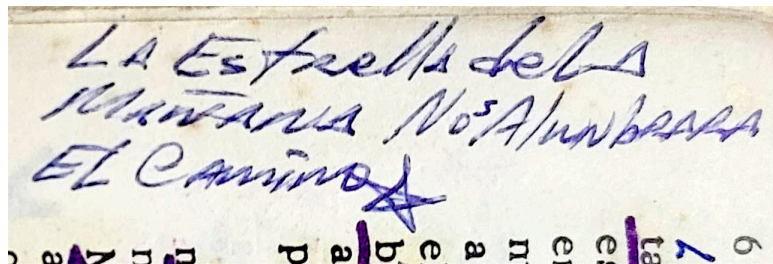 La Estrella de La
Mañana Nos Alunbrara
El Camino